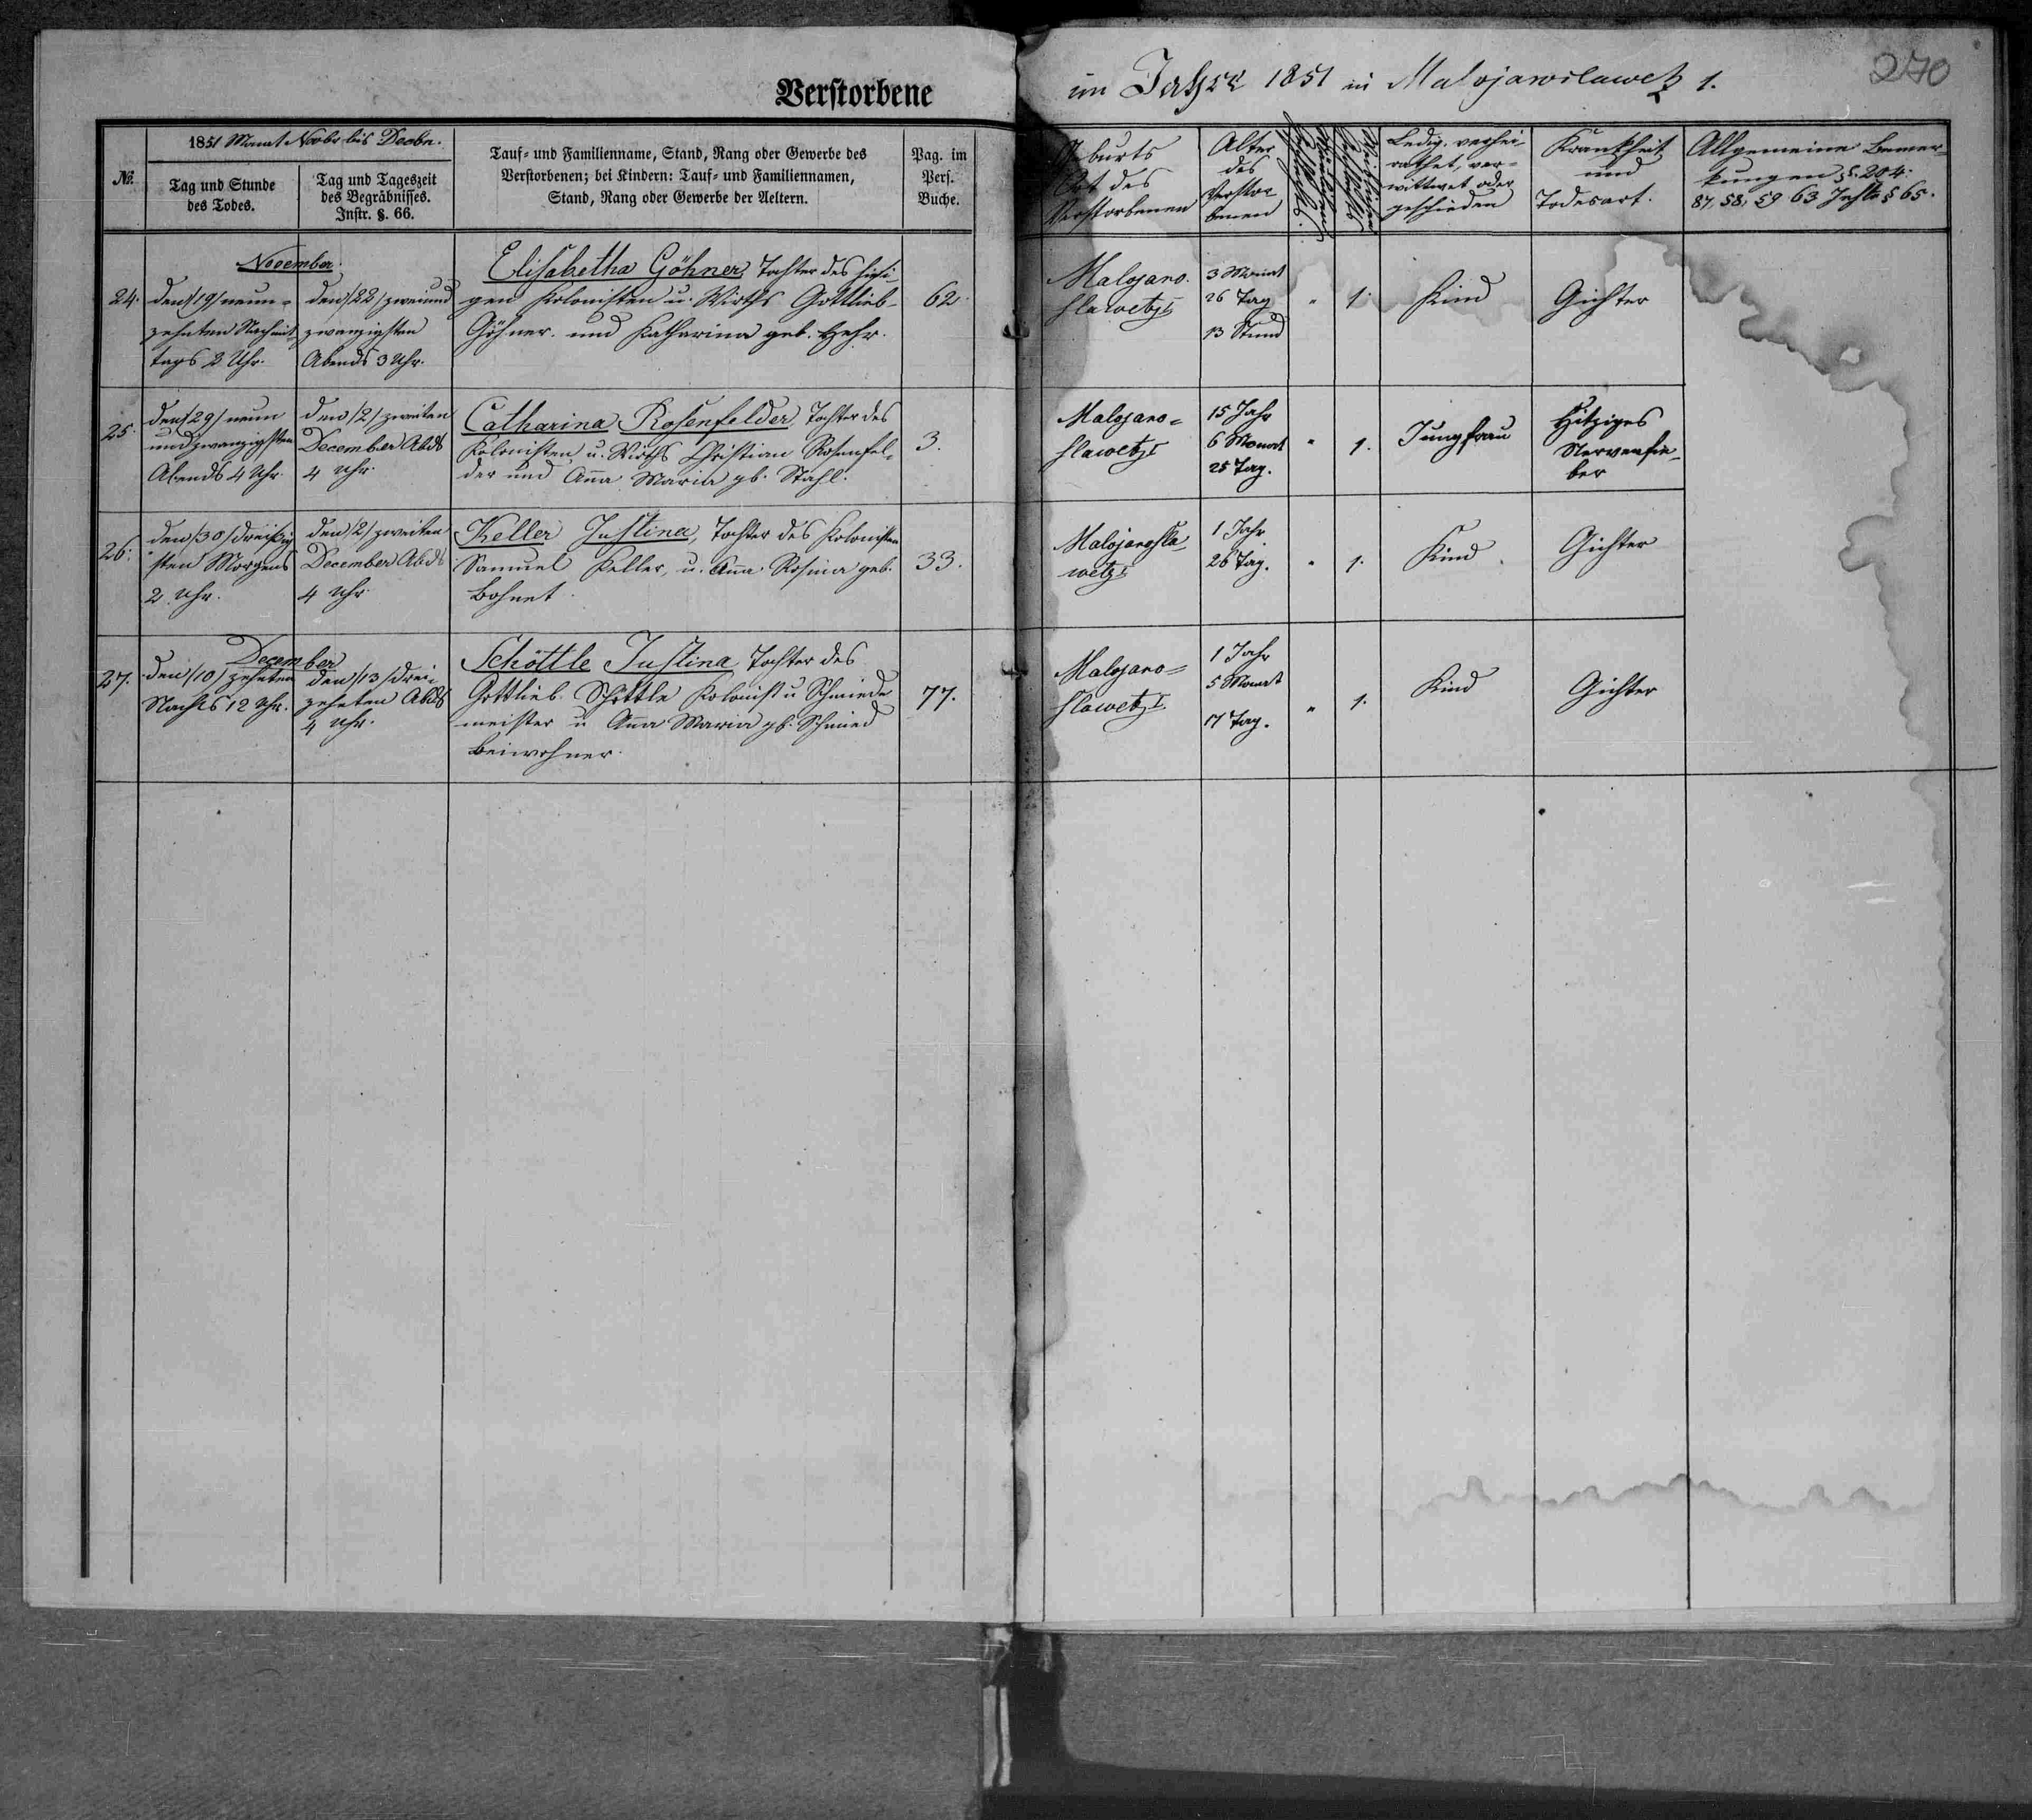 Verstorbene
im Jahre 1851 in Malojaroslawetz 1.
270
№.
1851 Monat Novbr bis Decbr.
Tag und Stunde
des Todes.
Tag und Tageszeit
des Begräbnisses.
Instr. §. 66.
Tauf- und Familienname, Stand, Rang oder Gewerbe des
Verstorbenen; bei Kindern: Tauf- und Familiennamen,
Stand, Rang oder Gewerbe der Aeltern.
Pag. im
Pers.
Buche.
Geburts
Ort des
Verstorbenen
Alter
des
Verstor
benen
Ledig, verhei-
rathet, ver-
wittwet oder
geschieden
Krankheit
und
Todesart.
Allgemeine Bemer-
kungen §. 204.
87, 58, 59 63 Instr § 65.
November.
24.
den /19/ neun-
zehnten Nachmit
tags 2 Uhr.
den /22/ zweiund
zwanzigsten
Abends 3 Uhr.
Elisabetha Göhner, Tochter des hiesi-
gen Kolonisten u. Wirths Gottlieb
Göhner. und Katharina geb. Hehr.
62.
Malojaro.
slawetz I
3 Monat
26 Tag
13 Stund
" 1.
Kind
Gichter
25.
den /29/ neun
undzwanzigsten
Abends 4 Uhr.
den /2/ zweiten
December Abds
4 Uhr.
Catharina Rosenfelder, Tochter des
Kolonisten u. Wirths Christian Rosenfel-
der und Anna Maria gb. Stahl.
3.
Malojaro=
slawetz I
15 Jahr
6 Monat
25 Tag.
" 1.
Jungfrau
Hitziges
Nervenfie-
ber
26.
den /30/ dreißig
sten Morgens
2 Uhr.
den /2/ zweiten
December Abds
4 Uhr.
Keller Justina, Tochter des Kolonisten
Samuel Keller, u. Anna Rosina geb.
Bohnet.
33.
Malojarosla
wetz I
1 Jahr
26 Tag.
" 1.
Kind
Gichter
December
27.
den /10/ zehnten
Nachts 12 Uhr.
den /13/ drei
zehnten Abds
4 Uhr.
Schöttle Justina Tochter des
Gottlieb Schöttle Kolonist u Schmiede
meister u Anna Maria gb. Schmied
Beiwohner.
77.
Malojaro=
slawetz I.
1 Jahr
5 Monat
17 Tag.
" 1.
Kind
Gichter